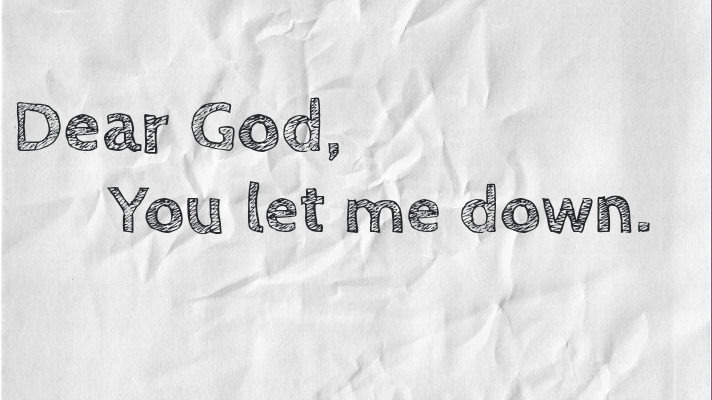 Dear God,
You let me down.